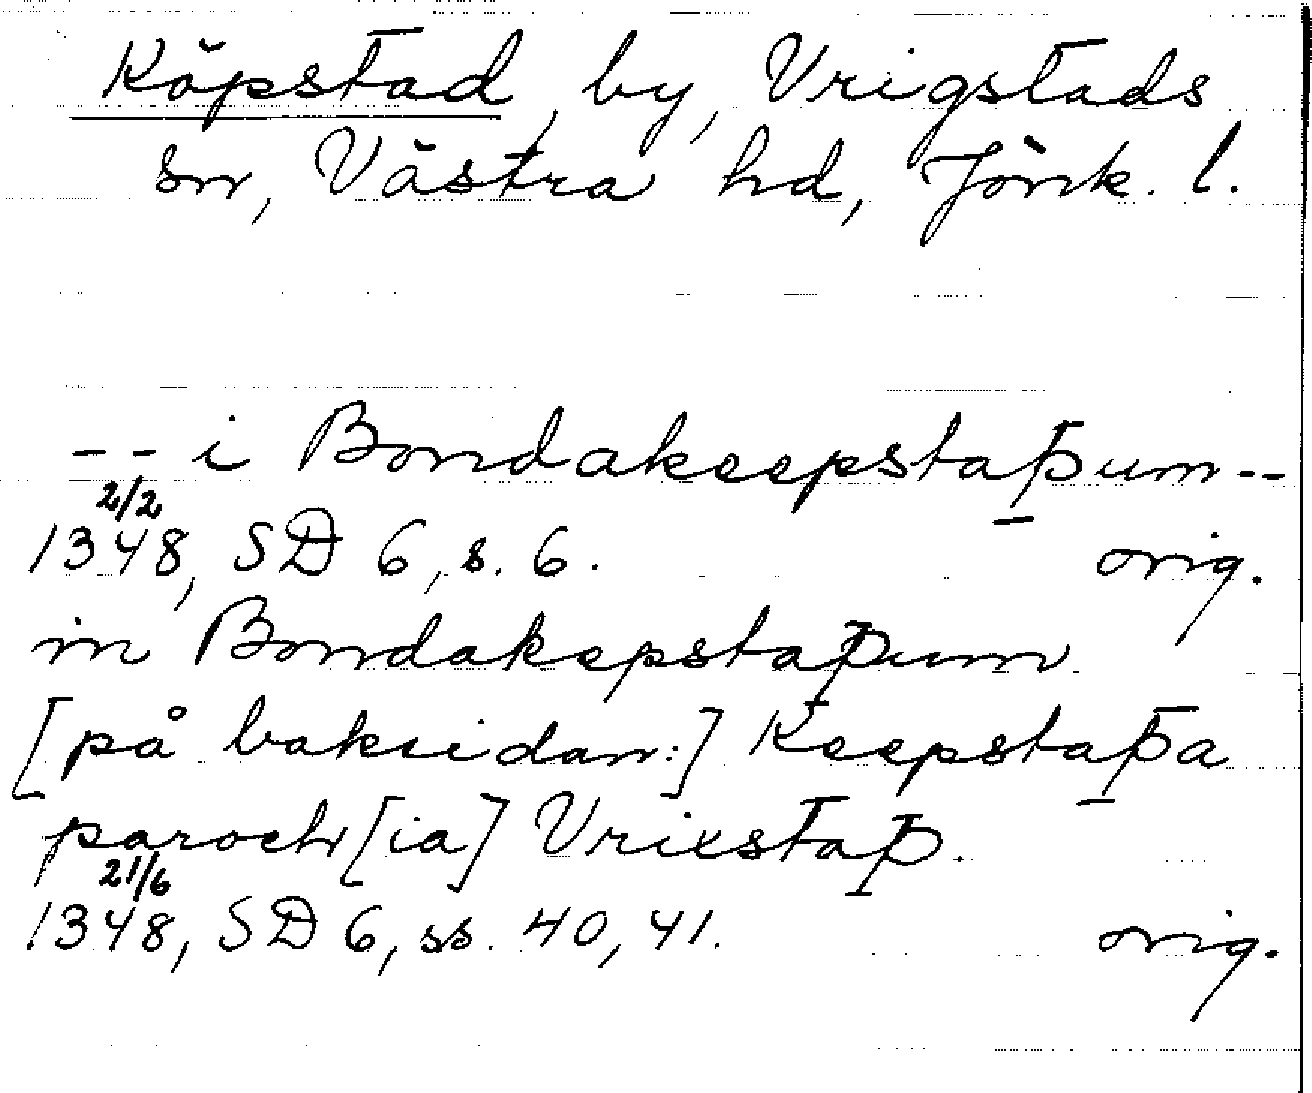 Köpstad, by, Vrigstads
sn, Västra hd, Jönk. l.
-- i Bondakeepstaþum--
2/2
1348, SD 6, s. 6. orig.
in Bondakepstaþum
[på baksidan:] Keepstaþa
paroch[ia] Vrixstaþ.
21/6
1348, SD 6, ss. 40, 41. orig.